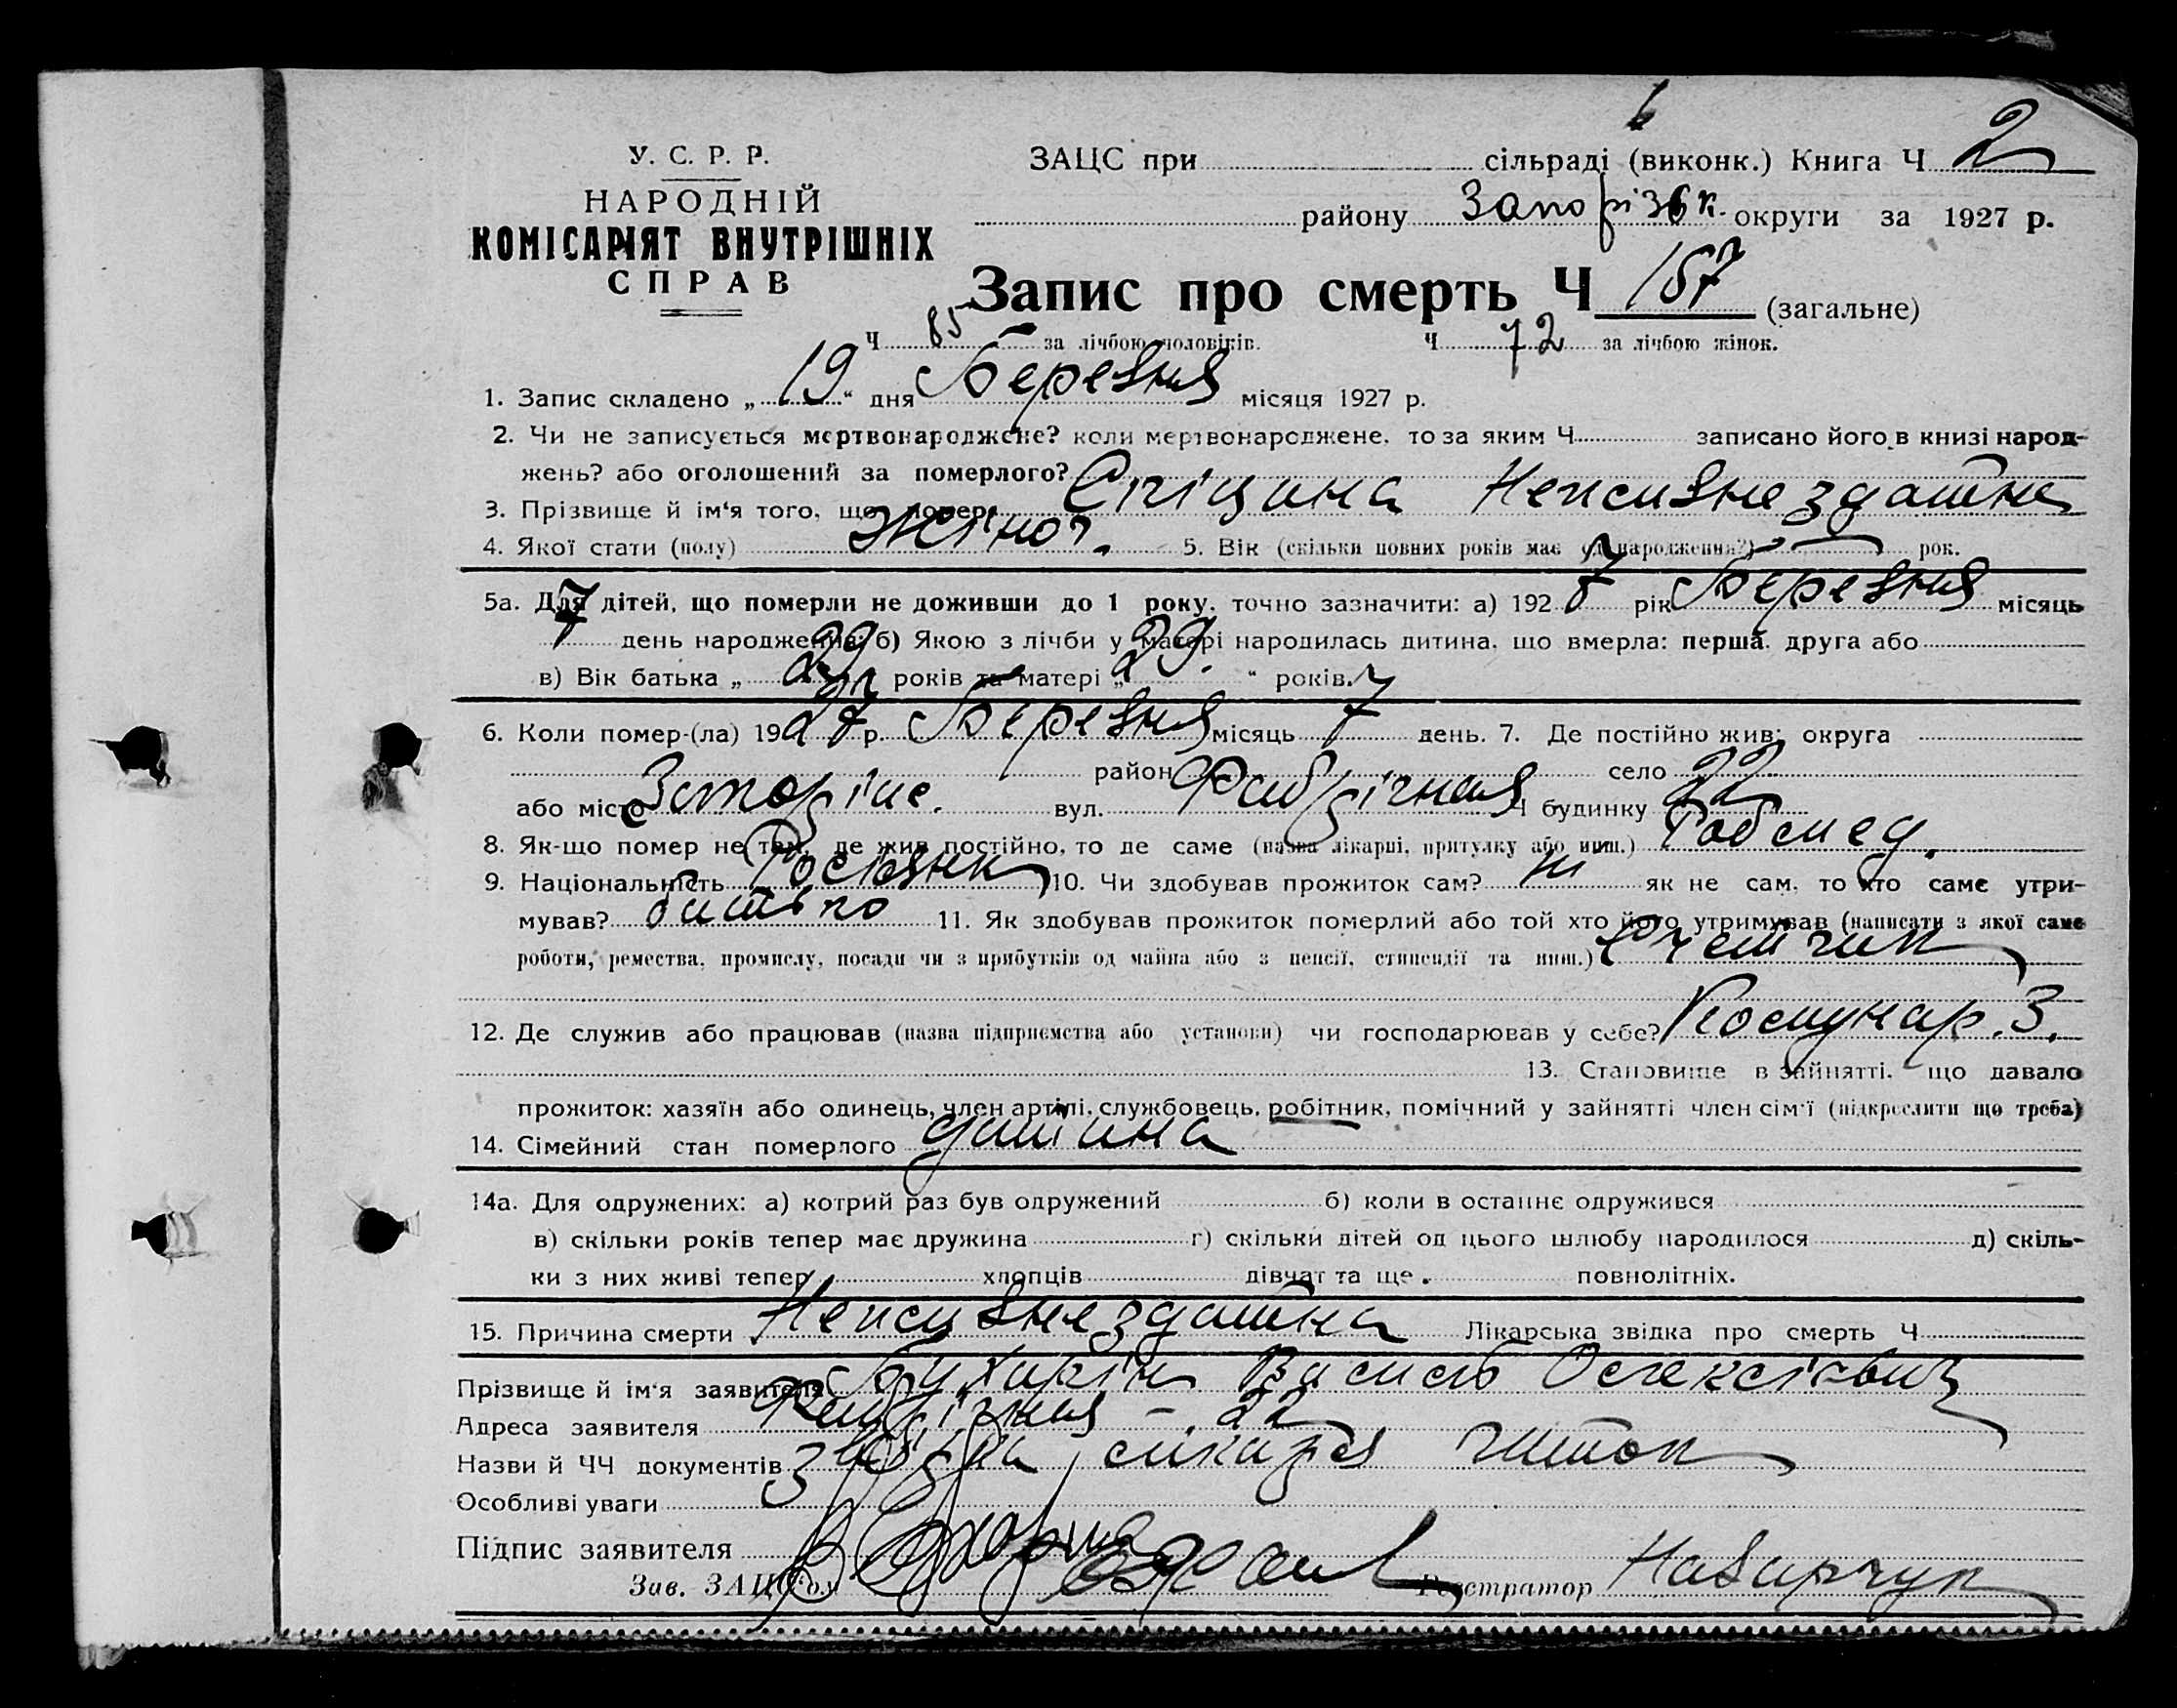 У. С. Р. Р.
НАРОДНІЙ
КОМІСАРІЯТ ВНУТРІШНІХ
СПРАВ
ЗАЦС при сільраді (виконк.) Книга Ч 2
району Запорізьк. округи за 1927 р.
Запис про смерть Ч 157 (загальне)
Ч 85 за лічбою чоловіків. Ч 72 за лічбою жінок.
1. Запис складено „ 19 “ дня Березня місяця 1927 р.
2. Чи не записується мертвонароджене? коли мертвонароджене, то за яким Ч записано його в книзі народ-
жень? або оголошений за померлого?
3. Прізвище й ім‘я того, що помер Спіцина Неписивнездатна
4. Якої стати (полу) Жіноч. 5. Вік (скільки повних років має од народження?) — рок.
5а. Для дітей, що померли не доживши до 1 року, точно зазначити: а) 192 7 рік Березня місяць
7 день народження; б) Якою з лічби у матері народилась дитина, що вмерла: перша, друга або
в) Вік батька „ 29 років та матері „ 29. “ років.
6. Коли помер-(ла) 19 27 р. Березня місяць 7 день. 7. Де постійно жив: округа
район село
або місто Запоріже. вул. Фабрічная Ч будинку 22
8. Як-що помер не там, де жив постійно, то де саме (назва лікарні, притулку або инш.) Робмед.
9. Національність Росіянк 10. Чи здобував прожиток сам? ні як не сам, то хто саме утри-
мував? батько 11. Як здобував прожиток померлий або той хто його утримував (написати з якої саме
роботи, ремества, промислу, посади чи з прибутків од майна або з пенсії, стипендії та инш.) Счетчик
12. Де служив або працював (назва підприємства або установи) чи господарював у себе? Комунар. З.
13. Становище в зайнятті, що давало
прожиток: хазяїн або одинець, член артілі, службовець, робітник, помічний у зайнятті член сім‘ї (підкреслити що треба)
14. Сімейний стан померлого дитина
14а. Для одружених: а) котрий раз був одружений б) коли в останнє одружився
в) скільки років тепер має дружина г) скільки дітей од цього шлюбу народилося д) скіль-
ки з них живі тепер хлопців дівчат та ще повнолітніх.
15. Причина смерти Неписивнездатна Лікарська звідка про смерть Ч
Прізвище й ім‘я заявителя Бухарін Василь Олексієвич
Адреса заявителя Фабрічная – 22
Назви й ЧЧ документів Звідка лікаря
Особливі уваги
Підпис заявителя
Зав. ЗАЦС‘ом Реєстратор